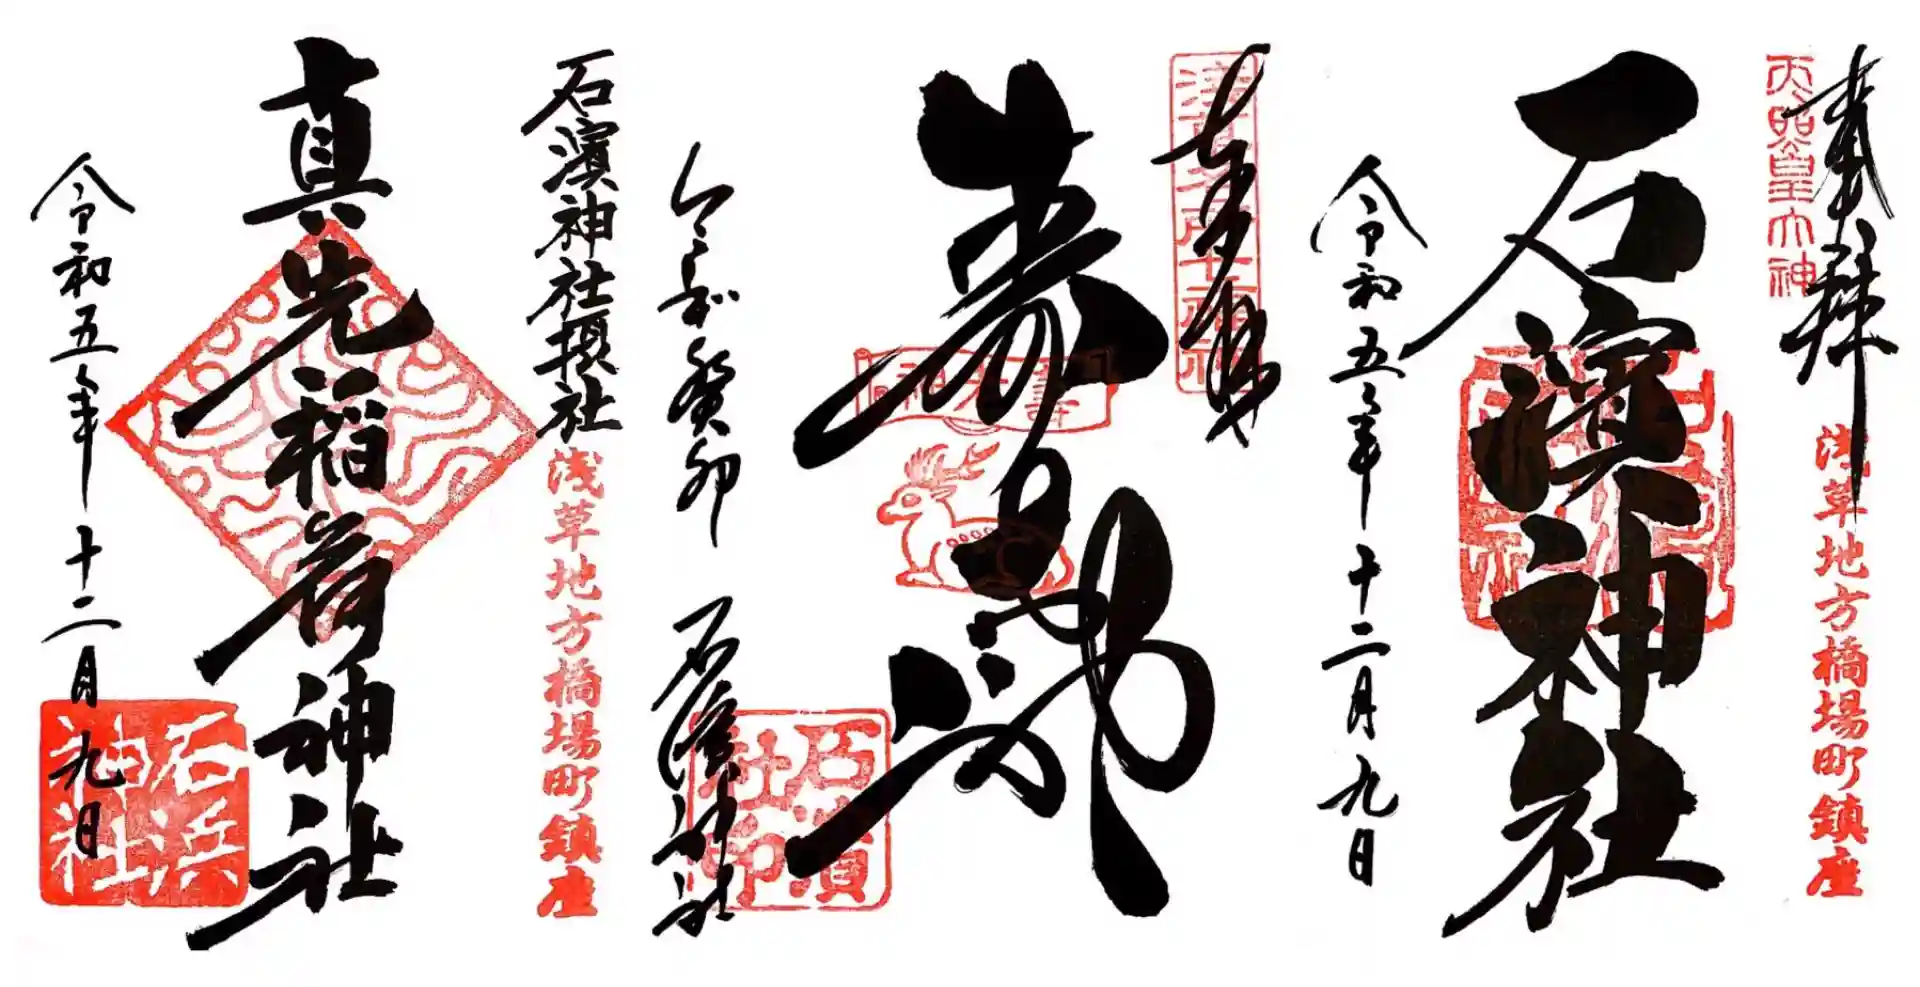 奉拝
天照皇大神
浅草地方橋場町鎮座
石濱神社
令和五年十二月九日
奉拝
浅草名所七福神
寿老神
令和癸卯
石濱神社
石濱社印
石濱神社摂社
浅草地方橋場町鎮座
真先稲荷神社
令和五年十二月九日
石浜神社